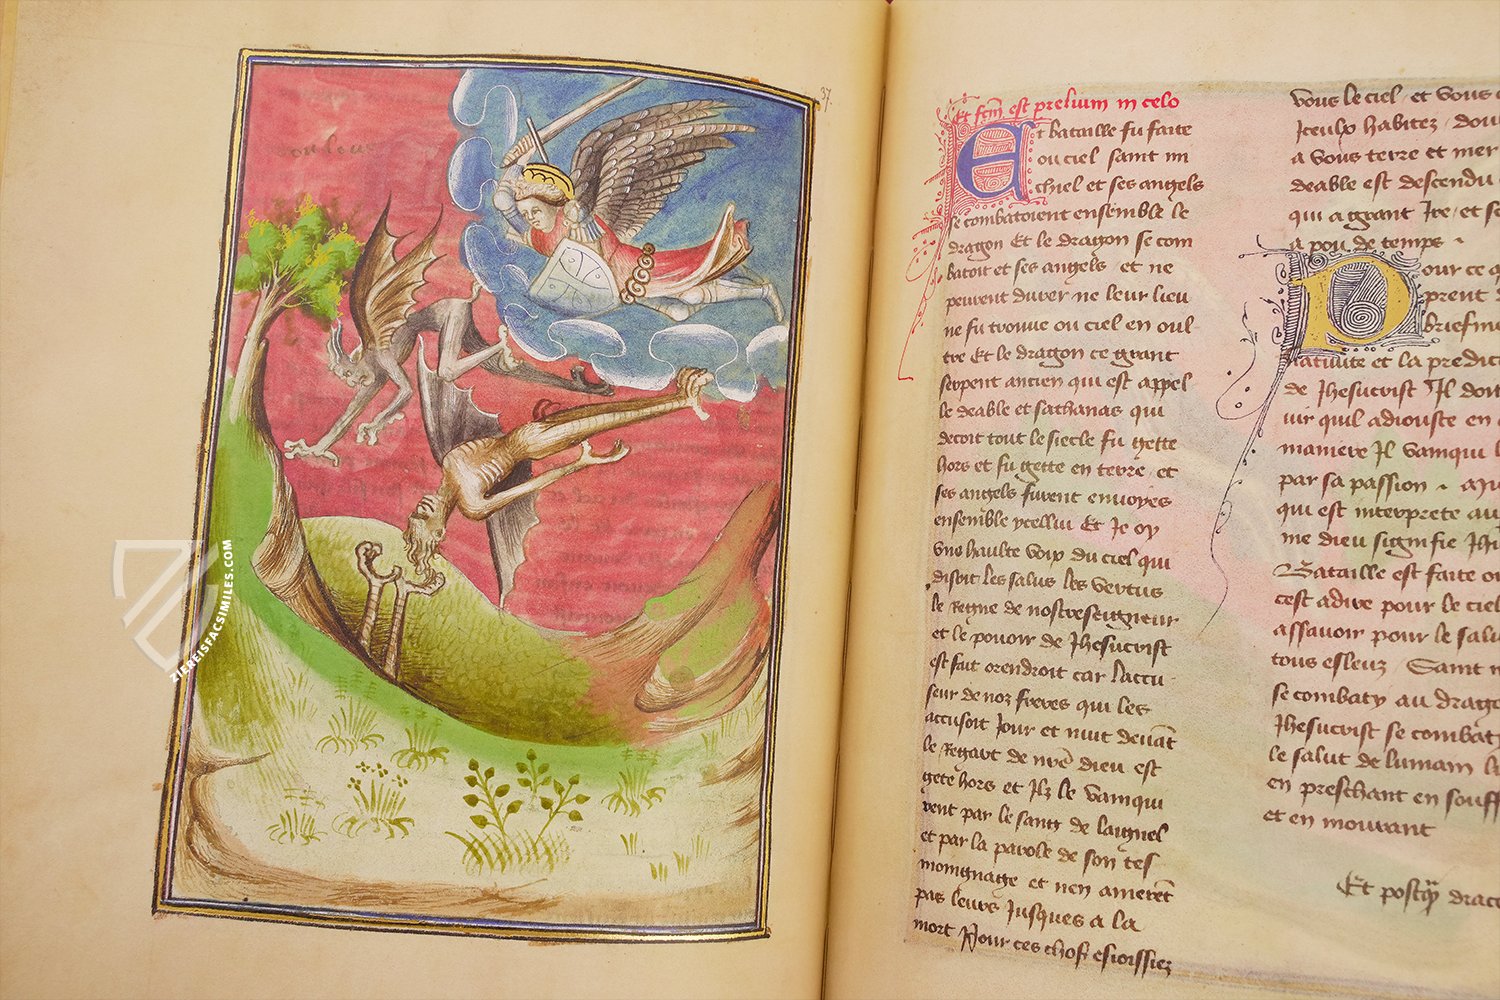 37.
ZIEREISFACSIMILES.COM
Et fcm̄ est prelium in celo
Et bataille fu faite
ou ciel saint mi
chiel et ses angels
se combatoient ensemble le
dragon Et le dragon se com
batoit et ses angels et ne
peurent durer ne leur lieu
ne fu trouue ou ciel en oul
tre Et le dragon ce grant
serpent ancien qui est appel
le deable et sathanas qui
decoit tout le siecle fu gette
hors et fu gette en terre et
ses angels furent enuoyes
ensemble ycellui Et Je oy
vne haulte voix du ciel qui
disoit les salus les vertus
le Regne de nostreseigneur
et le pouoir de Jhesucrist
est fait orendroit car laccu
seur de noz freres qui les
accusoit Jour et nuit deuāt
le Regart de nr̄e dieu est
gete hors et Ilz le vainqui
rent par le sang de laignel
et par la parole de son tes
moingnage et nen amerēt
pas leurs Jusques a la
mort Pour ces chos esioissiez
vous le ciel et vous
Iceulx habitez dou
a vous terre et mer
deable est descendu
qui a grant Ire et s
a pou de temps
Pour ce q
prent
briefme
natiuite et la predic
de Jhesucrist Il doit
uir quil adiouste en
maniere Il vainqui
par sa passion
qui est interprete au
me dieu signifie Jh
Bataille est faite ou
cest adire pour le ciel
assauoir pour le salu
tous esleuz Saint
se combaty au drago
Jhesucrist se combat
le salut de lumain
en preschant en souff
et en mourant
Et postq̄ drac